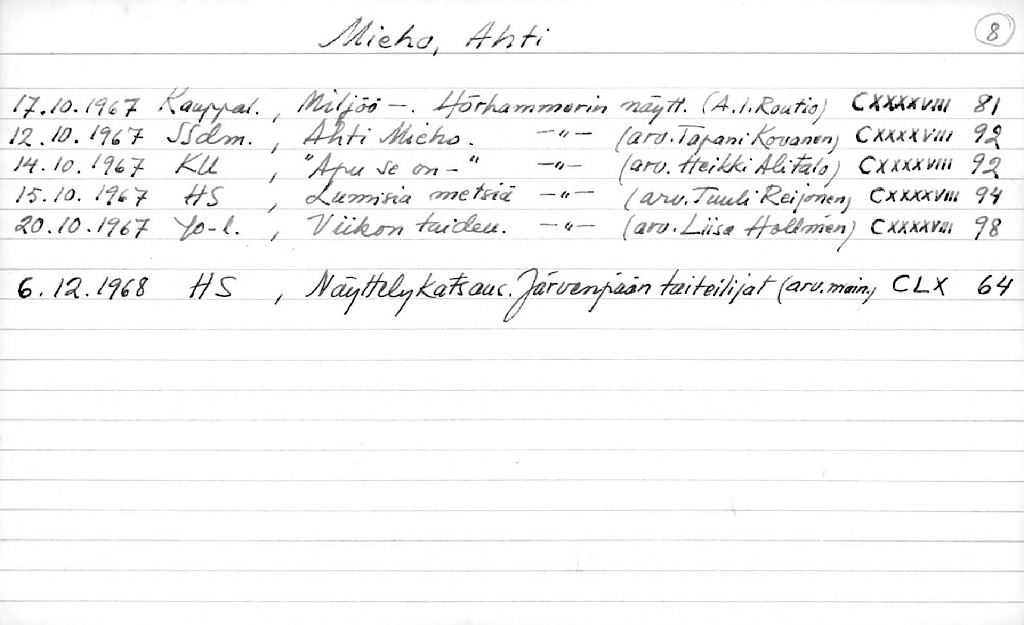 Mieho, Ahti 8
17.10.1967 Kauppal., Miljöö —. Hörhammerin näytt. (A.I. Routio) CXXXXVIII 81
12.10.1967 SSdm., Ahti Mieho. —"— (arv. Tapani Kovanen) CXXXXVIII 92
14.10.1967 KU, "Apu se on —" —"— (arv. Heikki Alitalo) CXXXXVIII 92
15.10.1967 HS, Lumisia metsiä —"— (arv. Tuuli Reijonen) CXXXXVIII 94
20.10.1967 Yo-l., Viikon taiden. —"— (arv. Liisa Hallmén) CXXXXVIII 98
6.12.1968 HS, Näyttelykatsaus. Järvenpään taiteilijat (arv. main) CLX 64